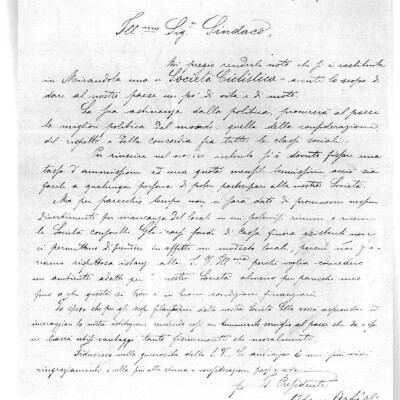 Ill.mo Sig.r Sindaco,
Mi pregio renderle noto che si è costituita
in Mirandola una "Società Ciclistica" avente lo scopo di
dare al nostro paese un po' di vita e di moto.
La sua astinenza dalla politica, procurerà al paese
la migliore politica del mondo: quella della considerazione
del rispetto e della concordia fra tutte le classi sociali.
Per riuscire nel intento si è dovuto fissare una
tassa d'ammissione ed una quota mensile tenuissima, acciò sia
facile a qualunque persona di poter partecipare alla nostra Società.
Ma per parecchio tempo non ci sarà dato di promuovere nessun
divertimento per mancanza del local in cui potersi riunire e ricevere
le Società consorelle. Gli fondi di Cassa finora esistenti non
ci permettono di prendere in affitto un modesto local, perciò
rispettosa istanza alla S. V. Ill.ma perché voglia concederci
un ambiente adatto per la nostra Società almeno per parecchi mesi
fino a che questa si trovi in buone condizioni finanziarie.
Io spero che per gli scopi della nostra Società Ella vorrà
la nostra istituzione rendendo così un servizio al paese che da essa
utili vantaggi tanto fisicamente che moralmente.
Fiducioso nella generosità della S. V. Le anticipo i miei più vivi
ringraziamenti, e colla più alta stima e considerazione
p. Il Presidente